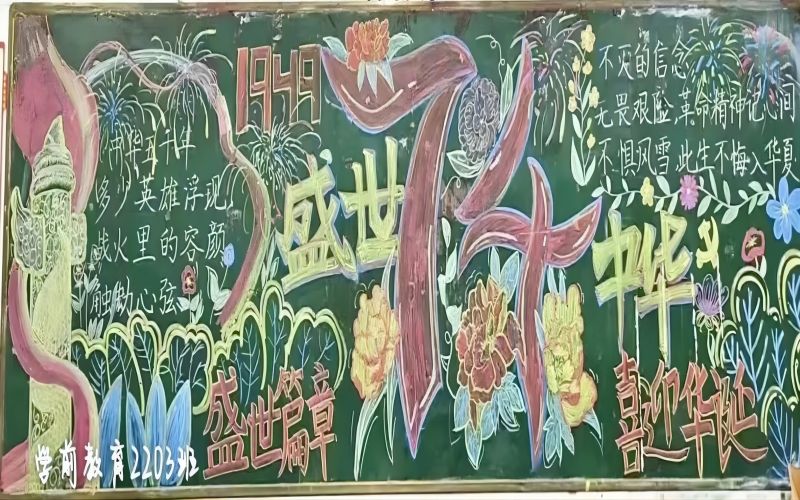 1949
74
盛世
中华
中华五千年
多少英雄浮现
战火里的容颜
触动心弦
不灭的信念
无畏艰险革命精神记心间
不惧风雪此生不悔入华夏
盛世篇章
喜迎华诞
学前教育2203班